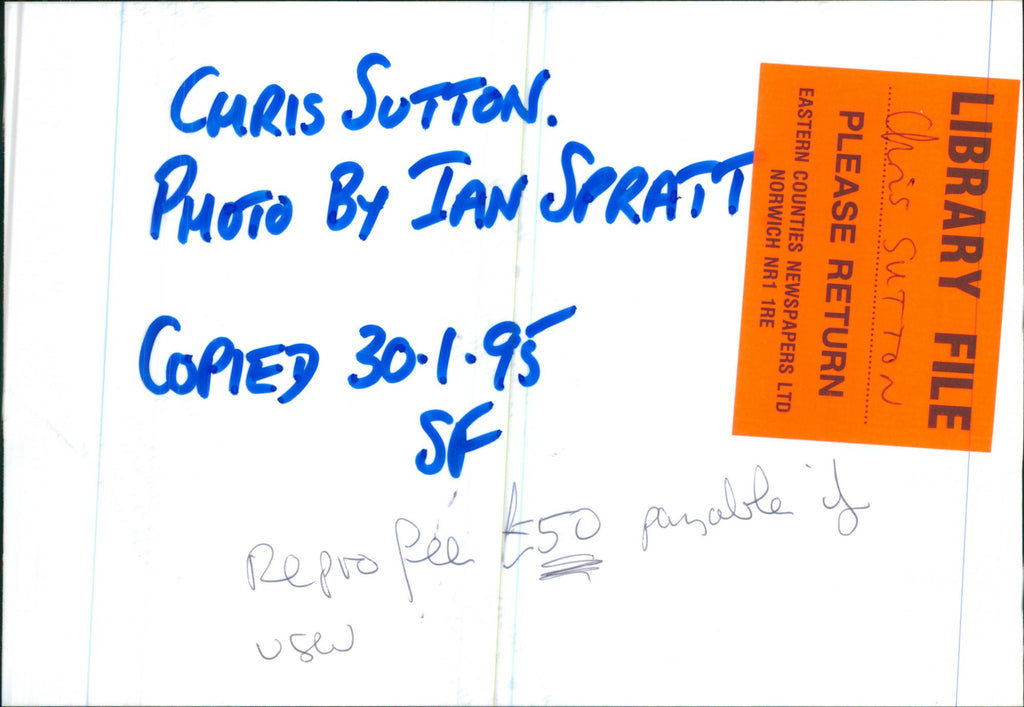 CHRIS SUTTON.
PHOTO BY IAN SPRATT
COPIED 30.1.95
SF
Repro fee £50 payable if
used
LIBRARY FILE
Chris SUTTON
PLEASE RETURN
EASTERN COUNTIES NEWSPAPERS LTD
NORWICH NR1 1RE